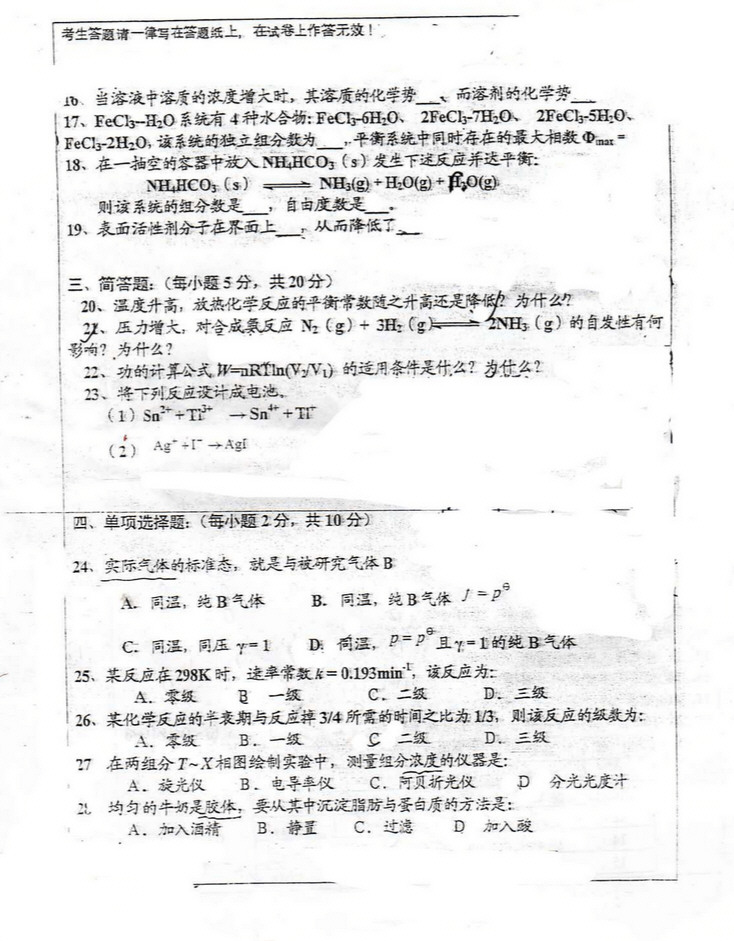 考生答题请一律写在答题纸上，在试卷上作答无效！
16、当溶液中溶质的浓度增大时，其溶质的化学势___、而溶剂的化学势___
17、FeCl₃--H₂O 系统有 4 种水合物: FeCl₃-6H₂O、 2FeCl₃-7H₂O、 2FeCl₃-5H₂O、
FeCl₃-2H₂O, 该系统的独立组分数为___，平衡系统中同时存在的最大相数 Φmax =
18、在一抽空的容器中放入 NH₄HCO₃（s）发生下述反应并达平衡:
NH₄HCO₃（s） ⇌ NH₃(g) + H₂O(g) + H₂O(g)
则该系统的组分数是___，自由度数是___。
19、表面活性剂分子在界面上___，从而降低了___
三、简答题：（每小题 5 分，共 20 分）
20、温度升高，放热化学反应的平衡常数随之升高还是降低？为什么？
21、压力增大，对合成氨反应 N₂（g）+ 3H₂（g）⇌ 2NH₃（g）的自发性有何
影响？为什么？
22、功的计算公式 W=nRTln(V₂/V₁) 的适用条件是什么？为什么？
23、将下列反应设计成电池。
（1）Sn²⁺ + Tl³⁺ → Sn⁴⁺ + Tl⁺
（2） Ag⁺ + I⁻ → AgI
四、单项选择题：（每小题 2 分，共 10 分）
24、实际气体的标准态，就是与被研究气体 B
A. 同温，纯 B 气体 B. 同温，纯 B 气体 f = p^⊖
C. 同温，同压 γ = 1 D. 同温，p = p^⊖ 且 γ = 1 的纯 B 气体
25、某反应在 298K 时，速率常数 k = 0.193min⁻¹，该反应为:
A. 零级 B 一级 C. 二级 D. 三级
26、某化学反应的半衰期与反应掉 3/4 所需的时间之比为 1/3，则该反应的级数为:
A. 零级 B. 一级 C 二级 D. 三级
27 在两组分 T～X 相图绘制实验中，测量组分浓度的仪器是:
A. 旋光仪 B. 电导率仪 C. 阿贝折光仪 D 分光光度计
28 均匀的牛奶是胶体，要从其中沉淀脂肪与蛋白质的方法是:
A. 加入酒精 B. 静置 C. 过滤 D 加入酸